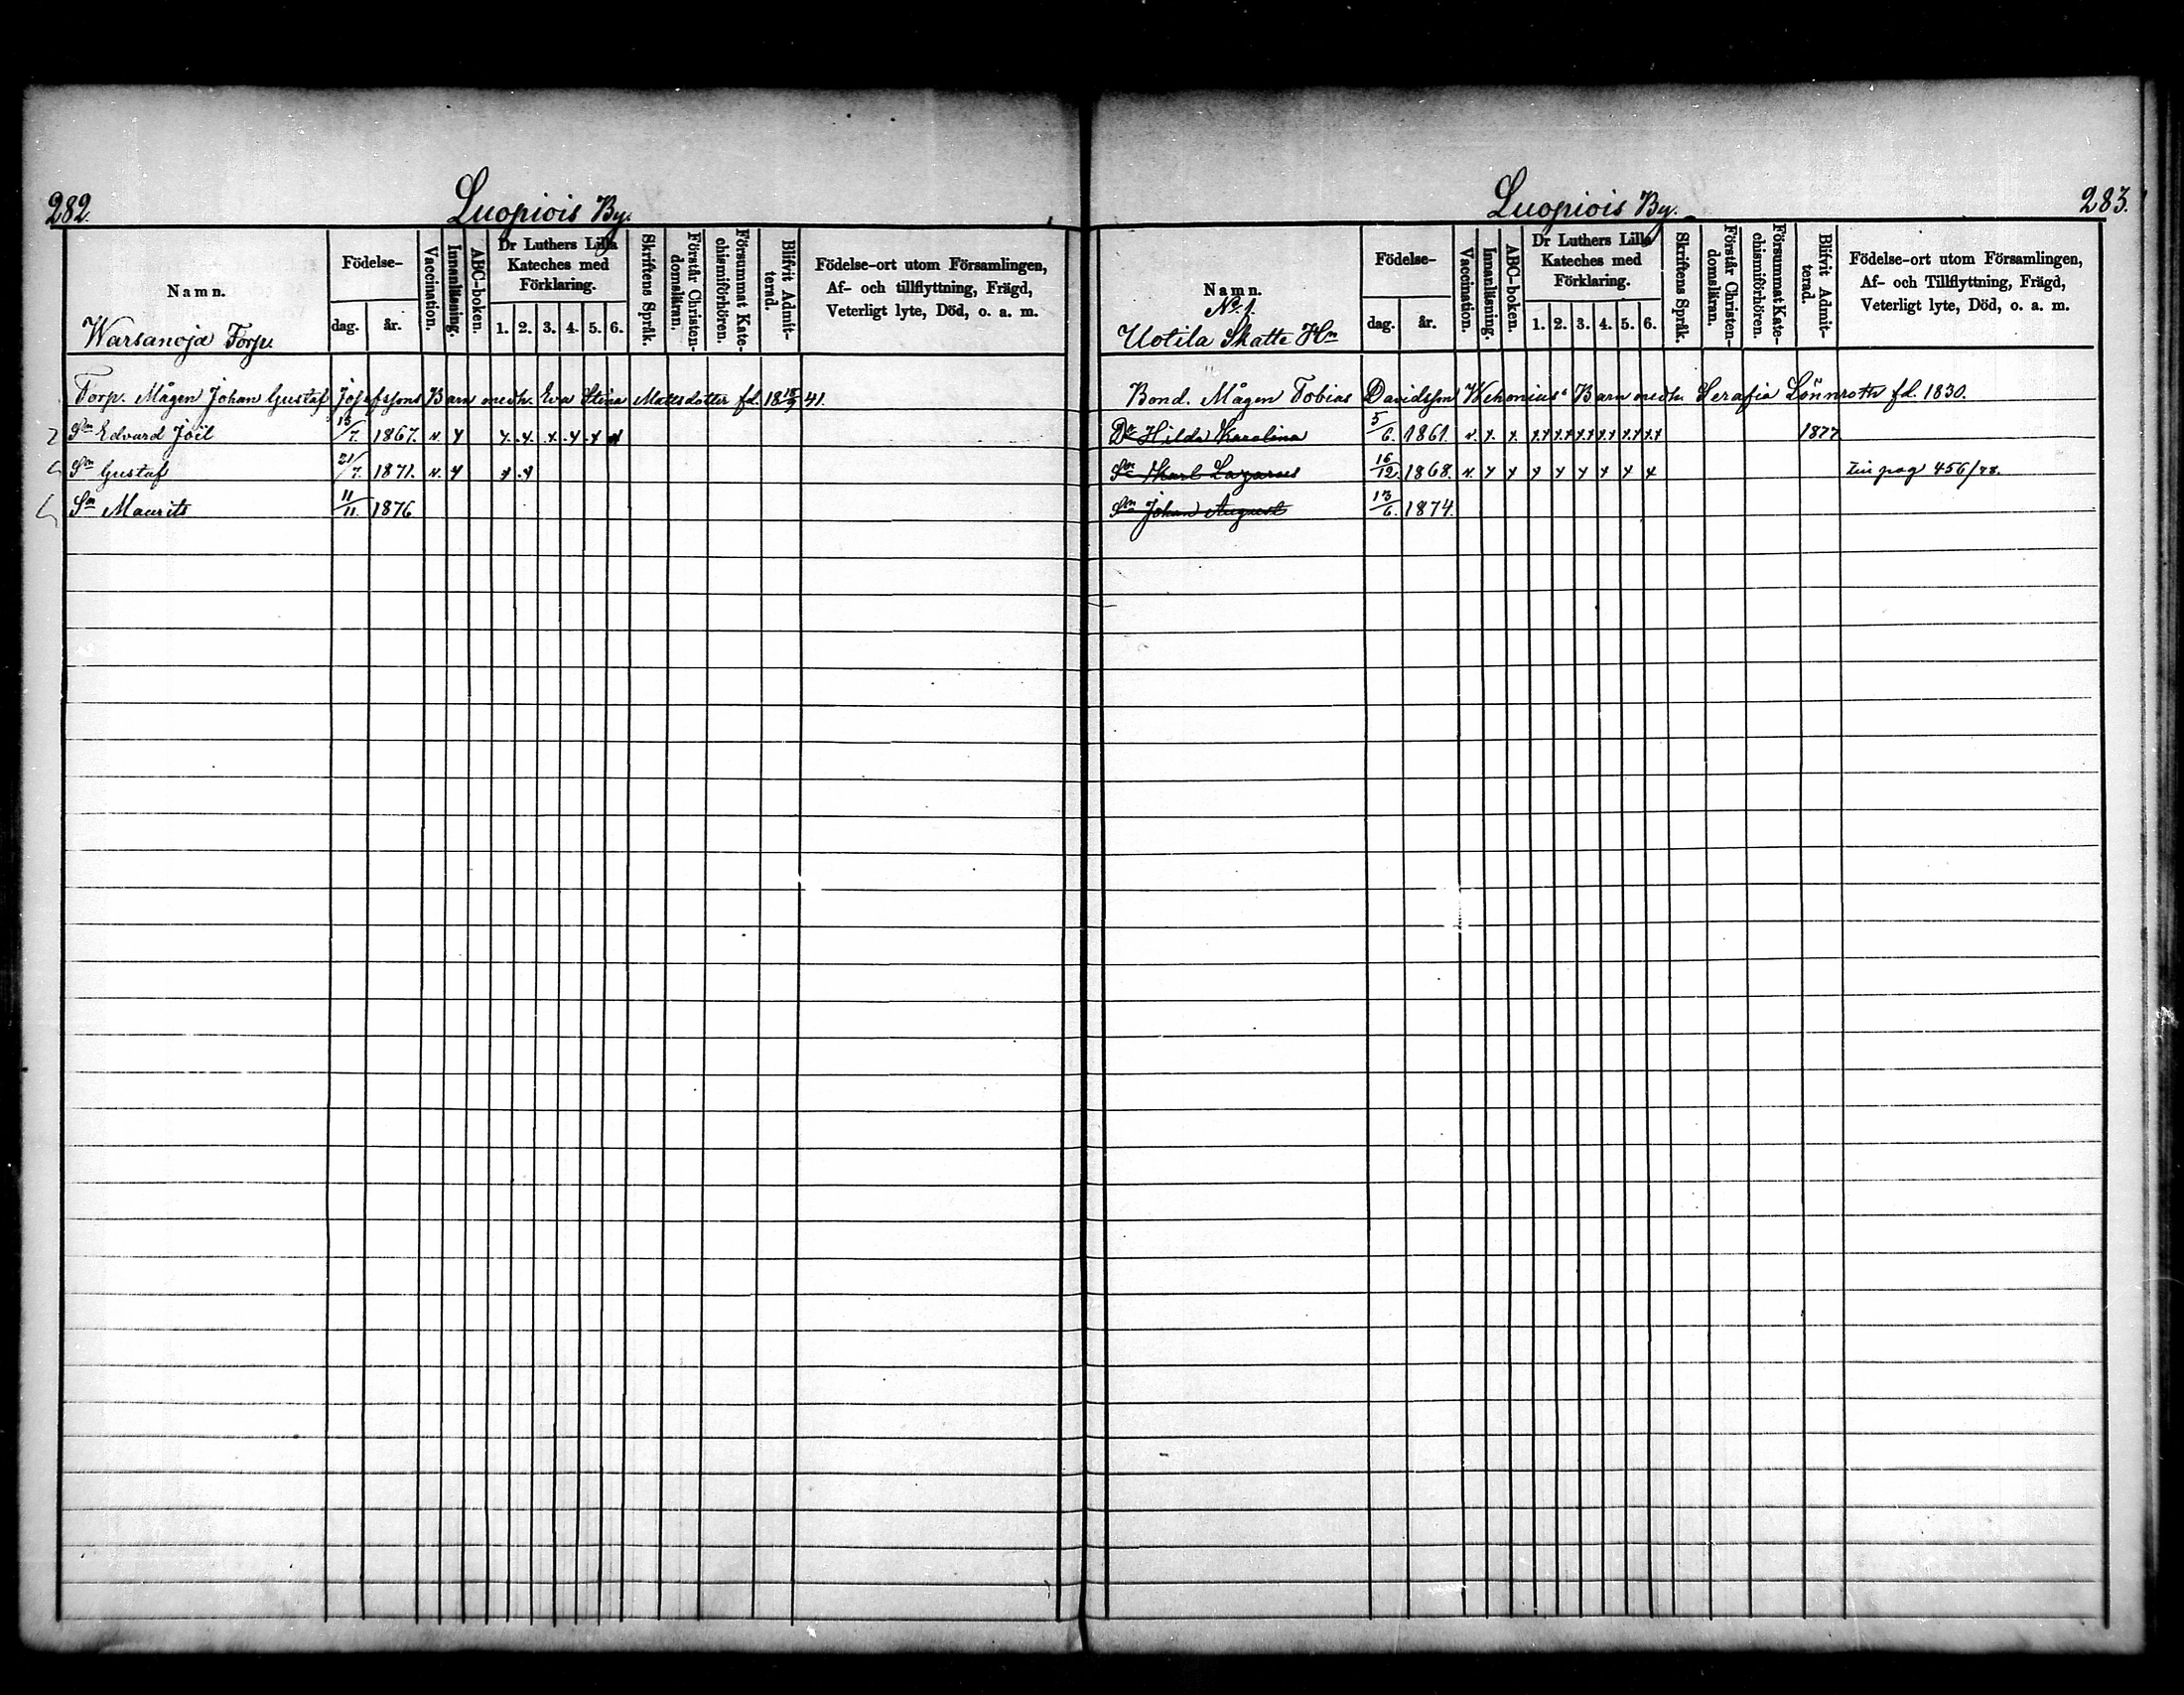 282.
Luopiois By.
Namn.
Födelse-
dag.
år.
Vaccination.
Innanläsning.
ABC-boken.
Dr Luthers Lilla
Kateches med
Förklaring.
1. 2. 3. 4. 5. 6.
Skriftens Språk.
Förstår Christen-
domsläran.
Försummat Kate-
chismiförhören.
Blifvit Admit-
terad.
Födelse-ort utom Församlingen,
Af- och tillflyttning, Frägd,
Veterligt lyte, Död, o. a. m.
Warsanoja Torp
Torp. Mågen Johan Gustaf Josefssons Barn medh. Eva Stina Mattsdotter fd. 18 41.
Sn Edvard Joël 15/7. 1867. v. x x. x. x. x. x x
Sn Gustaf 21/7. 1871. v. x x. x
Sn Maurits 11/11. 1876
Luopiois By.
283.
Namn.
No. 1.
Uotila Skatte Hn
Födelse-
dag.
år.
Vaccination.
Innanläsning.
ABC-boken.
Dr Luthers Lilla
Kateches med
Förklaring.
1. 2. 3. 4. 5. 6.
Skriftens Språk.
Förstår Christen-
domsläran.
Försummat Kate-
chismiförhören.
Blifvit Admit-
terad.
Födelse-ort utom Församlingen,
Af- och Tillflyttning, Frägd,
Veterligt lyte, Död, o. a. m.
Bond. Mågen Tobias Davidsson Wehonius' Barn medh. Serafia Lönnroth fd. 1830.
Dr Hilda Karolina 5/6. 1861. v. x. x. xx xx xx xx xx xx 1877
Sn Karl Lazarus 16/12. 1868. v. x x x x x x x x pag 456/78.
Sn Johan August 13/6. 1874.